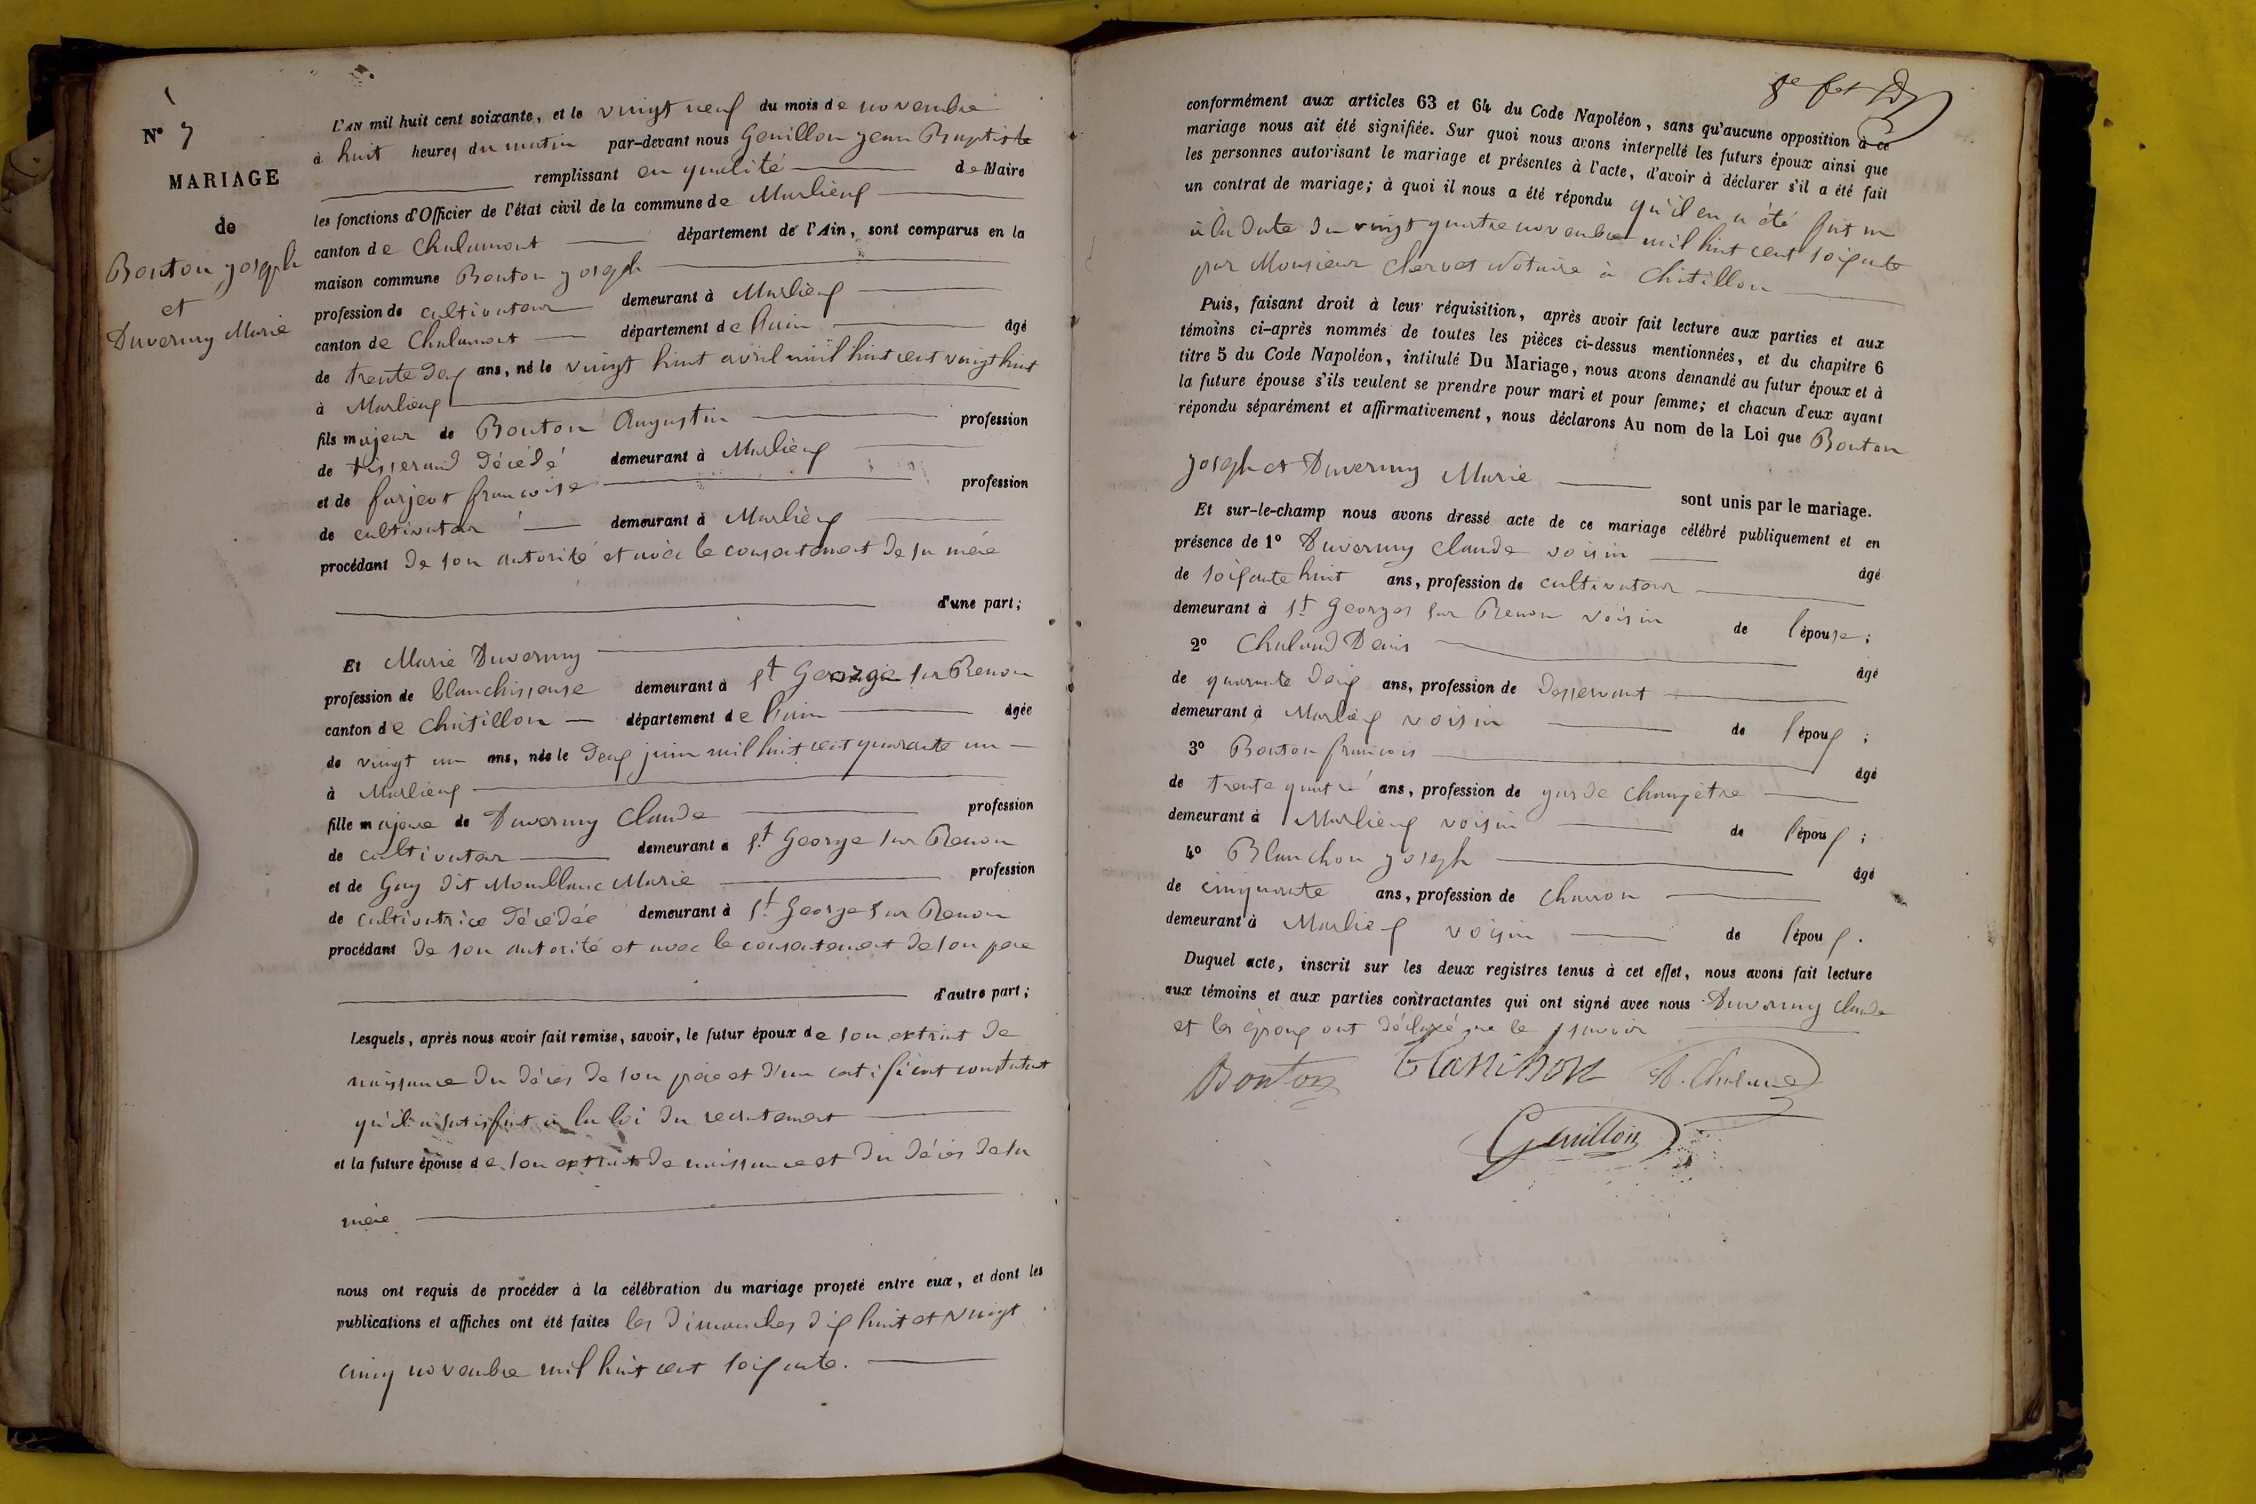 N° 7
MARIAGE
de
Bouton joseph
et
Duverny Marie
L'AN mil huit cent soixante, et le vingt neuf du mois de novembre
à huit heures du matin par-devant nous Genillon jean Baptiste
remplissant en qualité de Maire
les fonctions d'Officier de l'état civil de la commune de Marlieux
canton de Chalamont département de l'Ain, sont comparus en la
maison commune Bouton joseph
profession de cultivateur demeurant à Marlieux
canton de Chalamont département de l'ain âgé
de trente deux ans, né le vingt huit avril mil huit cent vingt huit
à Marlieux
fils majeur de Bouton Augustin profession
de tisserand décédé demeurant à Marlieux
et de farjeot francoise profession
de cultivateur demeurant à Marlieux
procédant de son autorité et avec le consentement de sa mère
d'une part;
Et Marie Duverny
profession de blanchisseuse demeurant à St George sur Renon
canton de Chatillon département de l'ain âgée
de vingt un ans, née le deux juin mil huit cent quarante un
à Marlieux
fille majeure de Duverny Claude profession
de cultivateur demeurant à St George sur Renon
et de Guy dit Monblanc Marie profession
de cultivatrice décédée demeurant à St George sur Renon
procédant de son autorité et avec le consentement de son père
d'autre part;
Lesquels, après nous avoir fait remise, savoir, le futur époux de son extrait de
naissance du décès de son père et d'un certificat constatant
qu'il a satisfait à la loi du recrutement
et la future épouse de son extrait de naissance et du décès de sa
mère
nous ont requis de procéder à la célébration du mariage projeté entre eux, et dont les
publications et affiches ont été faites les dimanches dix huit et vingt
cinq novembre mil huit cent soixante.
conformément aux articles 63 et 64 du Code Napoléon, sans qu'aucune opposition à ce
mariage nous ait été signifiée. Sur quoi nous avons interpellé les futurs époux ainsi que
les personnes autorisant le mariage et présentes à l'acte, d'avoir à déclarer s'il a été fait
un contrat de mariage; à quoi il nous a été répondu qu'il en a été fait un
à la date du vingt quatre novembre mil huit cent soixante
par Monsieur Chervet Notaire à Chatillon
Puis, faisant droit à leur réquisition, après avoir fait lecture aux parties et aux
témoins ci-après nommés de toutes les pièces ci-dessus mentionnées, et du chapitre 6
titre 5 du Code Napoléon, intitulé Du Mariage, nous avons demandé au futur époux et à
la future épouse s'ils veulent se prendre pour mari et pour femme; et chacun d'eux ayant
répondu séparément et affirmativement, nous déclarons Au nom de la Loi que Bouton
joseph et Duverny Marie sont unis par le mariage.
Et sur-le-champ nous avons dressé acte de ce mariage célébré publiquement et en
présence de 1° Duverny Claude voisin âgé
de soixante huit ans, profession de cultivateur
demeurant à St Georges sur Renon voisin de l'épouse;
2° Chaland Denis âgé
de quarante deux ans, profession de desservant
demeurant à Marlieux voisin de l'époux;
3° Bouton francois âgé
de trente quatre ans, profession de garde champêtre
demeurant à Marlieux voisin de l'époux;
4° Blanchon joseph âgé
de cinquante ans, profession de charron
demeurant à Marlieux voisin de l'époux.
Duquel acte, inscrit sur les deux registres tenus à cet effet, nous avons fait lecture
aux témoins et aux parties contractantes qui ont signé avec nous Duverny Claude
et les époux ont déclaré ne le savoir
Bouton Blanchon D. Chaland
Genillon